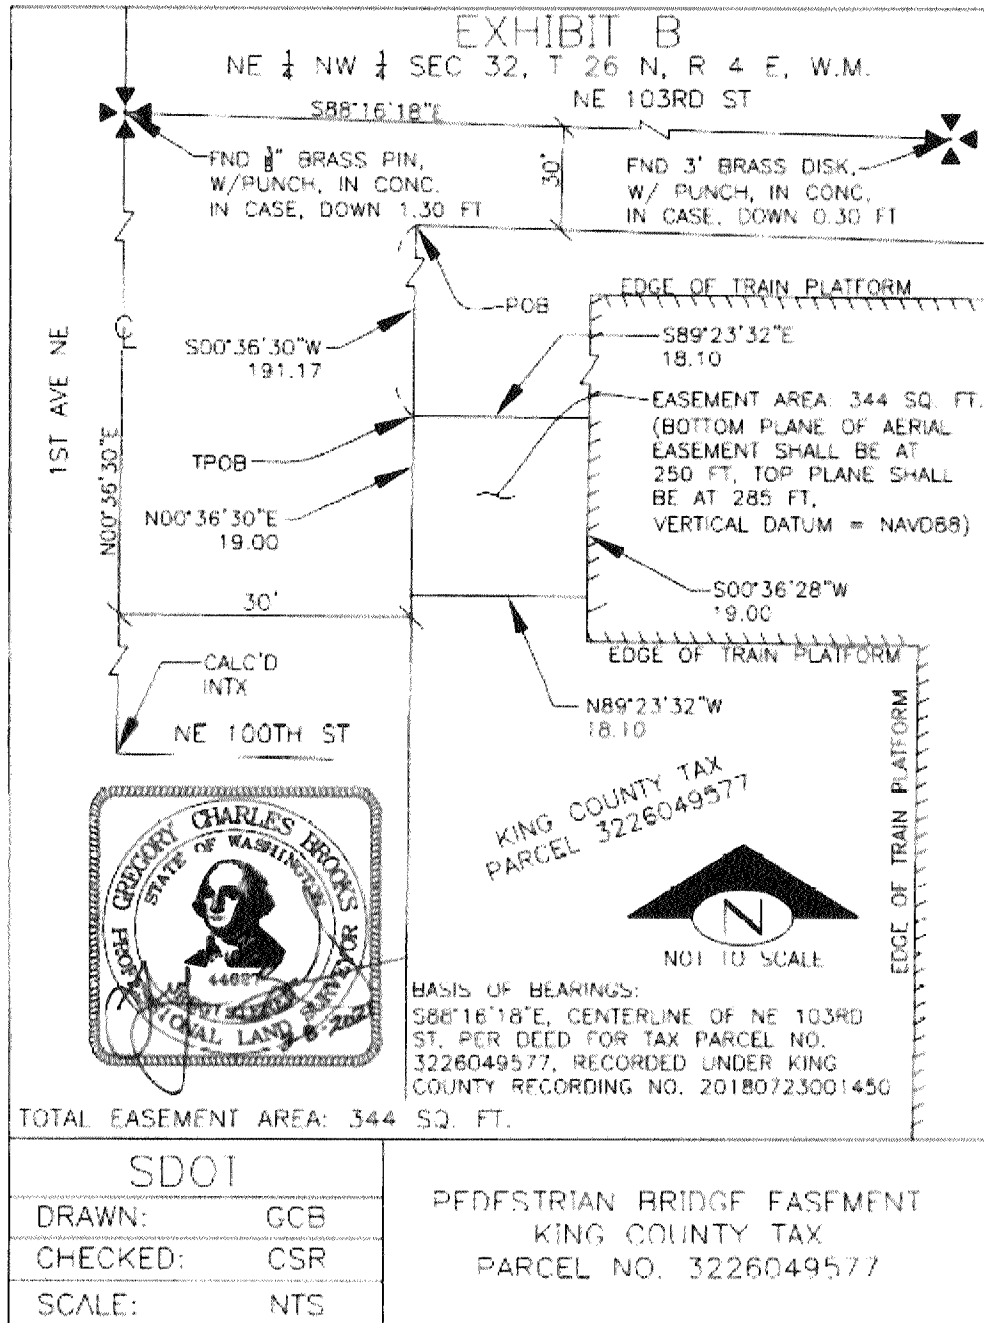 EXHIBIT B
NE 1/4 NW 1/4 SEC 32, T 26 N, R 4 E, W.M.
NE 103RD ST
S88°16'18"E
FND 3/8" BRASS PIN,
W/PUNCH, IN CONC.
IN CASE, DOWN 1.30 FT
30'
FND 3' BRASS DISK,
W/ PUNCH, IN CONC,
IN CASE, DOWN 0.30 FT
POB
EDGE OF TRAIN PLATFORM
1ST AVE NE
N00°36'30"E
S00°36'30"W
191.17
S89°23'32"E
18.10
EASEMENT AREA: 344 SQ. FT.
(BOTTOM PLANE OF AERIAL
EASEMENT SHALL BE AT
250 FT, TOP PLANE SHALL
BE AT 285 FT,
VERTICAL DATUM = NAVD88)
TPOB
N00°36'30"E
19.00
S00°36'28"W
19.00
30'
EDGE OF TRAIN PLATFORM
CALC'D
INTX
NE 100TH ST
N89°23'32"W
18.10
EDGE OF TRAIN PLATFORM
KING COUNTY TAX
PARCEL 3226049577
GREGORY CHARLES BROOKS
STATE OF WASHINGTON
PROFESSIONAL LAND SURVEYOR
N
NOT TO SCALE
BASIS OF BEARINGS:
S88°16'18"E, CENTERLINE OF NE 103RD
ST, PER DEED FOR TAX PARCEL NO.
3226049577, RECORDED UNDER KING
COUNTY RECORDING NO. 20180723001450
TOTAL EASEMENT AREA: 344 SQ. FT.
SDOT
DRAWN: GCB
CHECKED: CSR
SCALE: NTS
PEDESTRIAN BRIDGE EASEMENT
KING COUNTY TAX
PARCEL NO. 3226049577